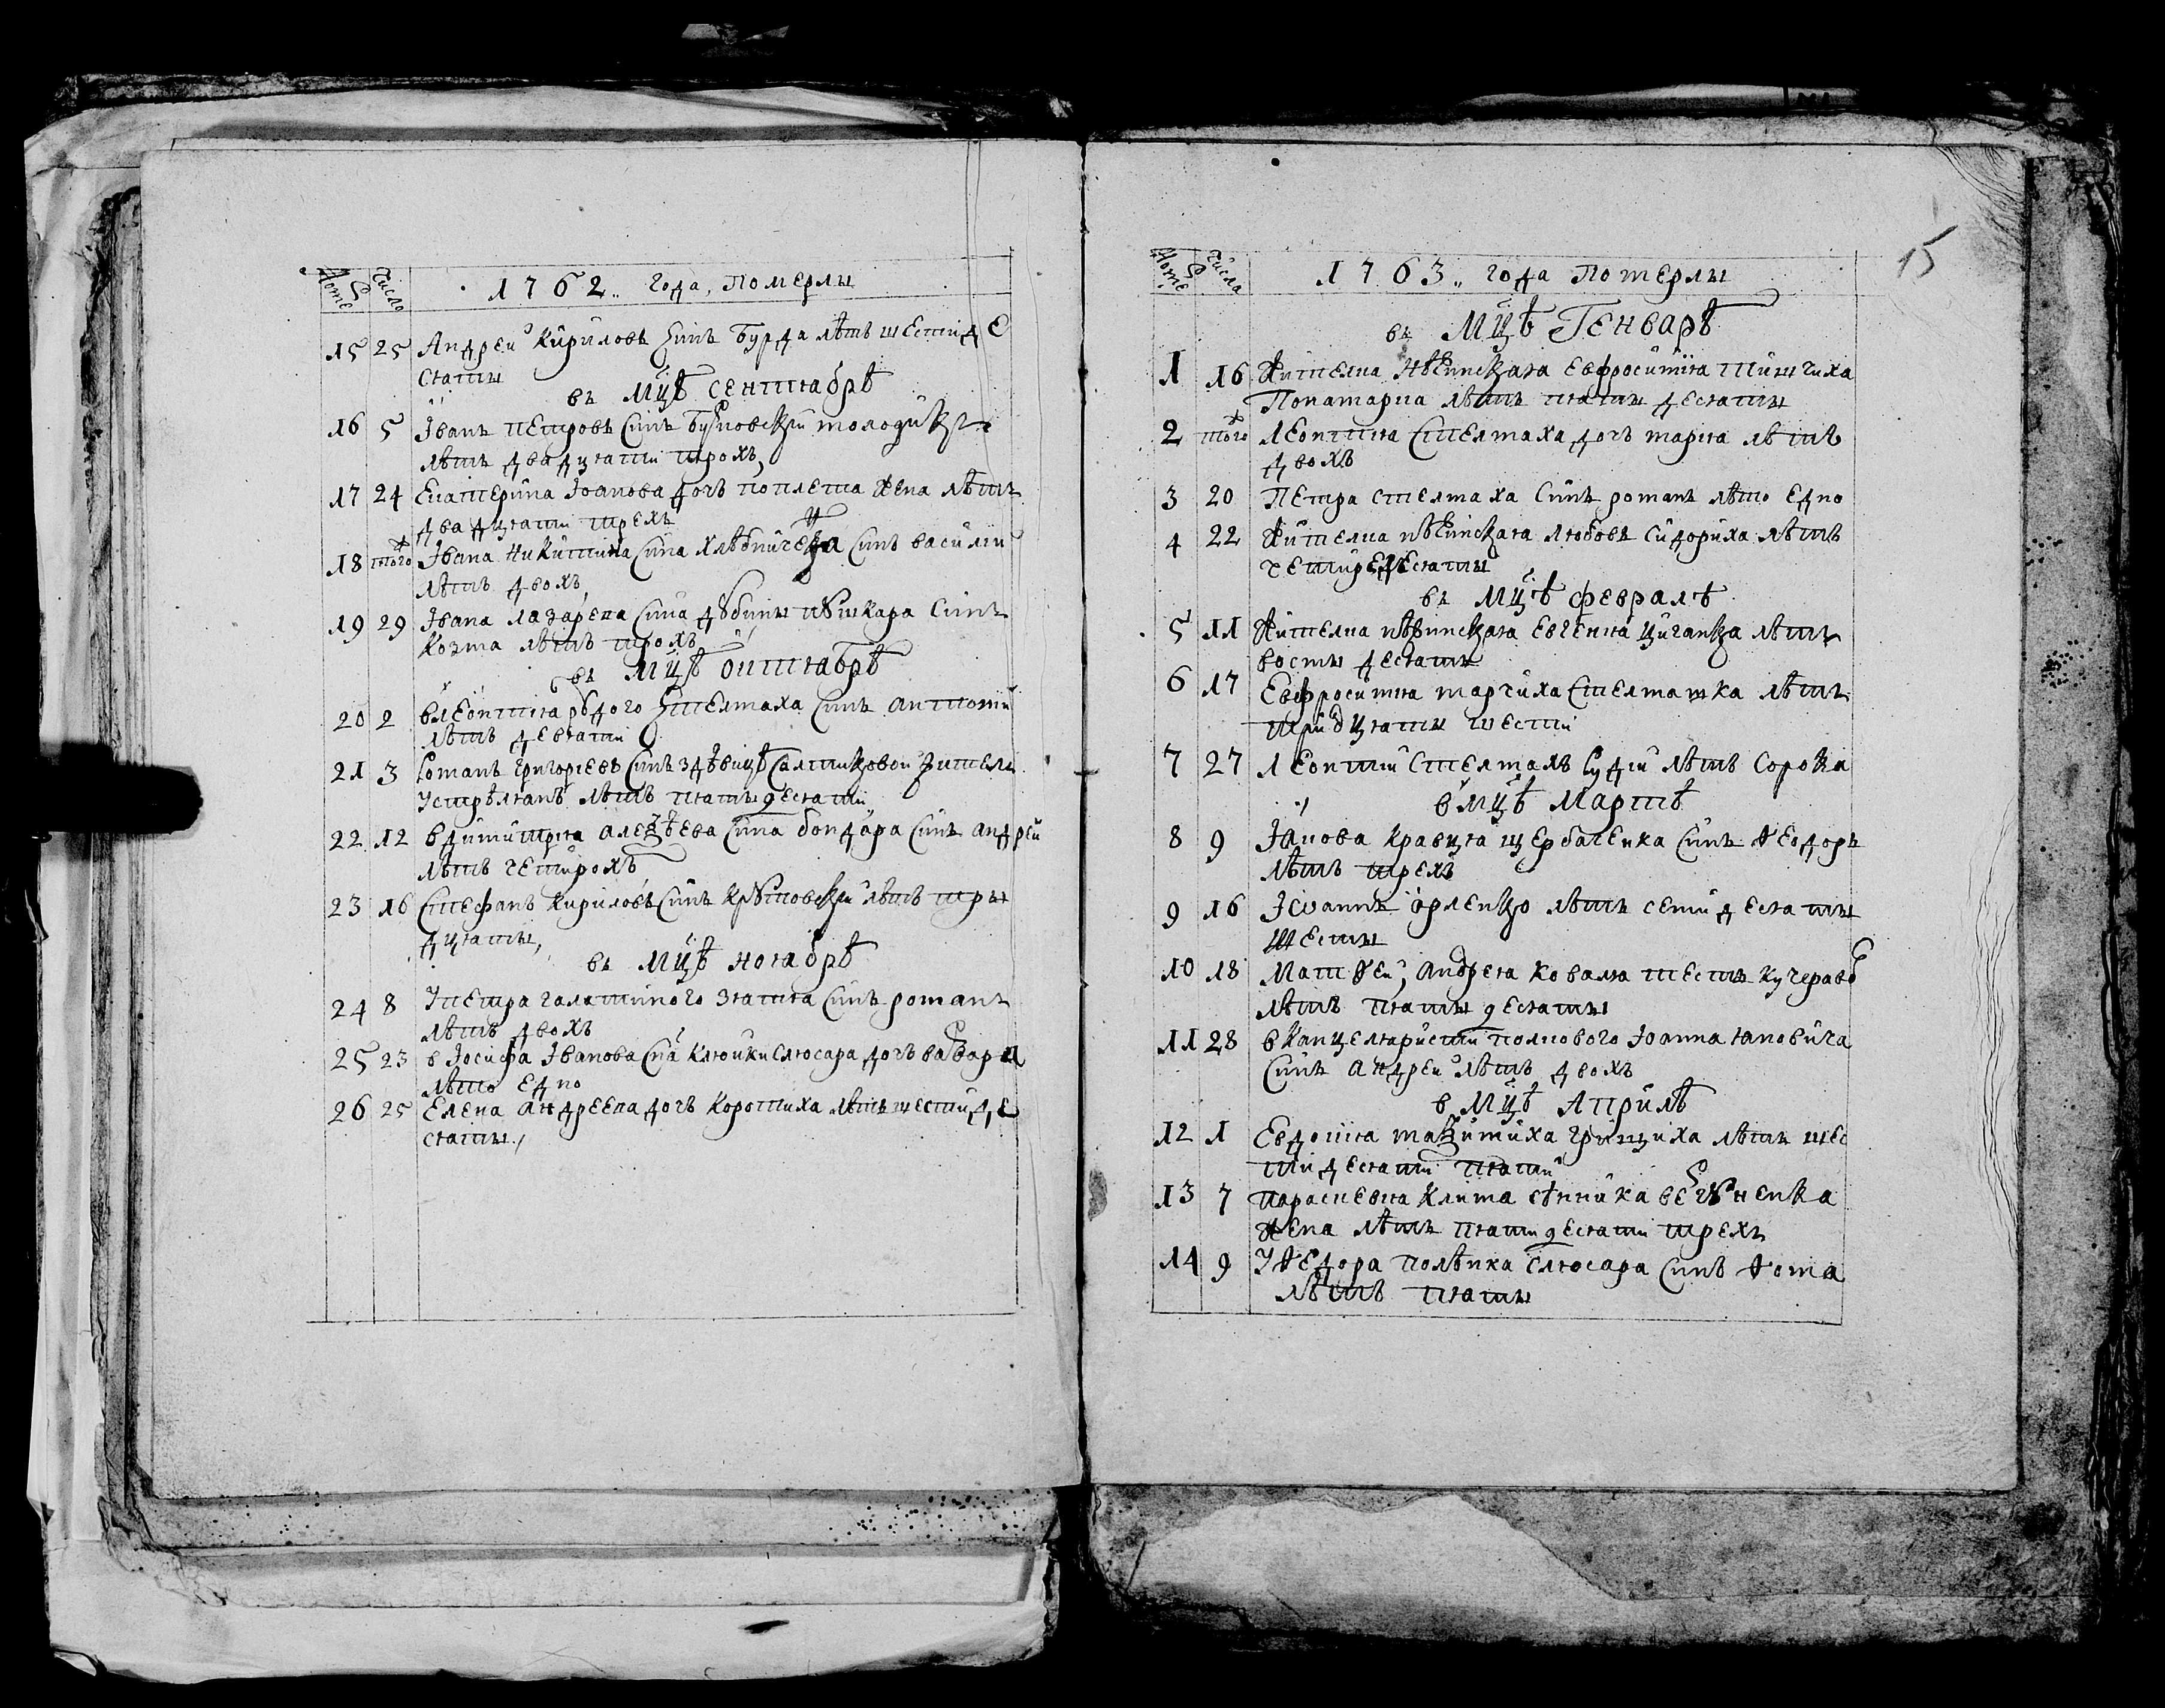 Номе Число 1762 года, Померлы
15 25 Андрей Кириловъ синъ Бурда лѣтъ шестиде
сятъ
въ мцѣ сентябрѣ
16 5 Іванъ Петровъ синъ
лѣтъ двадцяти трохъ,
17 24 Екатерина Іоанова дочъ жена лѣтъ
двадцяти трехъ
18 того Івана Никитина сина синъ василий
лѣтъ двохъ,
19 29 Івана лазарева сина дѣбины пѣшкара синъ
Козма лѣтъ трохъ
въ мцѣ октябрѣ
20 2 влеонтия рудого стелмаха синъ антоній
лѣтъ девяти
21 3 Романъ григориевъ синъ
лѣтъ пятьдесяти
22 12 вдимитрия алексѣева сина бондара синъ андрей
лѣтъ четирохъ
23 16 Стефанъ Кириловъ синъ лѣтъ тры
дцять,
въ мцѣ ноябрѣ
24 8 Упетра зятя синъ романъ
лѣтъ двохъ
25 23 в Іосифа Іванова сна слюсара дочъ варвара
лѣто едно
26 25 Елена андреева дочъ коротиха лѣтъ шестиде
сятъ,
15
Номе Числа 1763 года померлы
въ мцѣ Генварѣ
1 16 Жителка нѣжинская Евфросимия
Понамарка лѣтъ пятьдесятъ
2 того леонтия стелмаха дочъ мария лѣтъ
двохъ
3 20 Петра стелмаха синъ романъ лѣто едно
4 22 Жителка нѣжинская любовъ сидориха лѣтъ
четиредесятъ
въ мцѣ февралѣ
5 11 Жителка нѣжинская евгения циганка лѣтъ
восмьдесятъ
6 17 Евфросимия марчиха стелмашка лѣтъ
тридцять шести
7 27 леонтий стелмахъ рудий лѣтъ сорока
вмцѣ Мартѣ
8 9 Іакова кравця щербаченка синъ ѳеодоръ
лѣтъ трехъ
9 16 Іѡаннъ орленко лѣтъ семидесять
шесть
10 18 Матѳей, андрея коваля тесть кучераво
лѣтъ пятьдесятъ
11 28 вканцеляристи полкового Іоанна яновича
синъ андрей лѣтъ двохъ
в мцѣ Априлѣ
12 1 Евдокия максимиха грициха лѣтъ шес
тидесяти пяти
13 7 параскевия клима
жена лѣтъ пятидесяти трехъ
14 9 Уѳедора полѣика слюсара синъ ѳома
лѣтъ пять